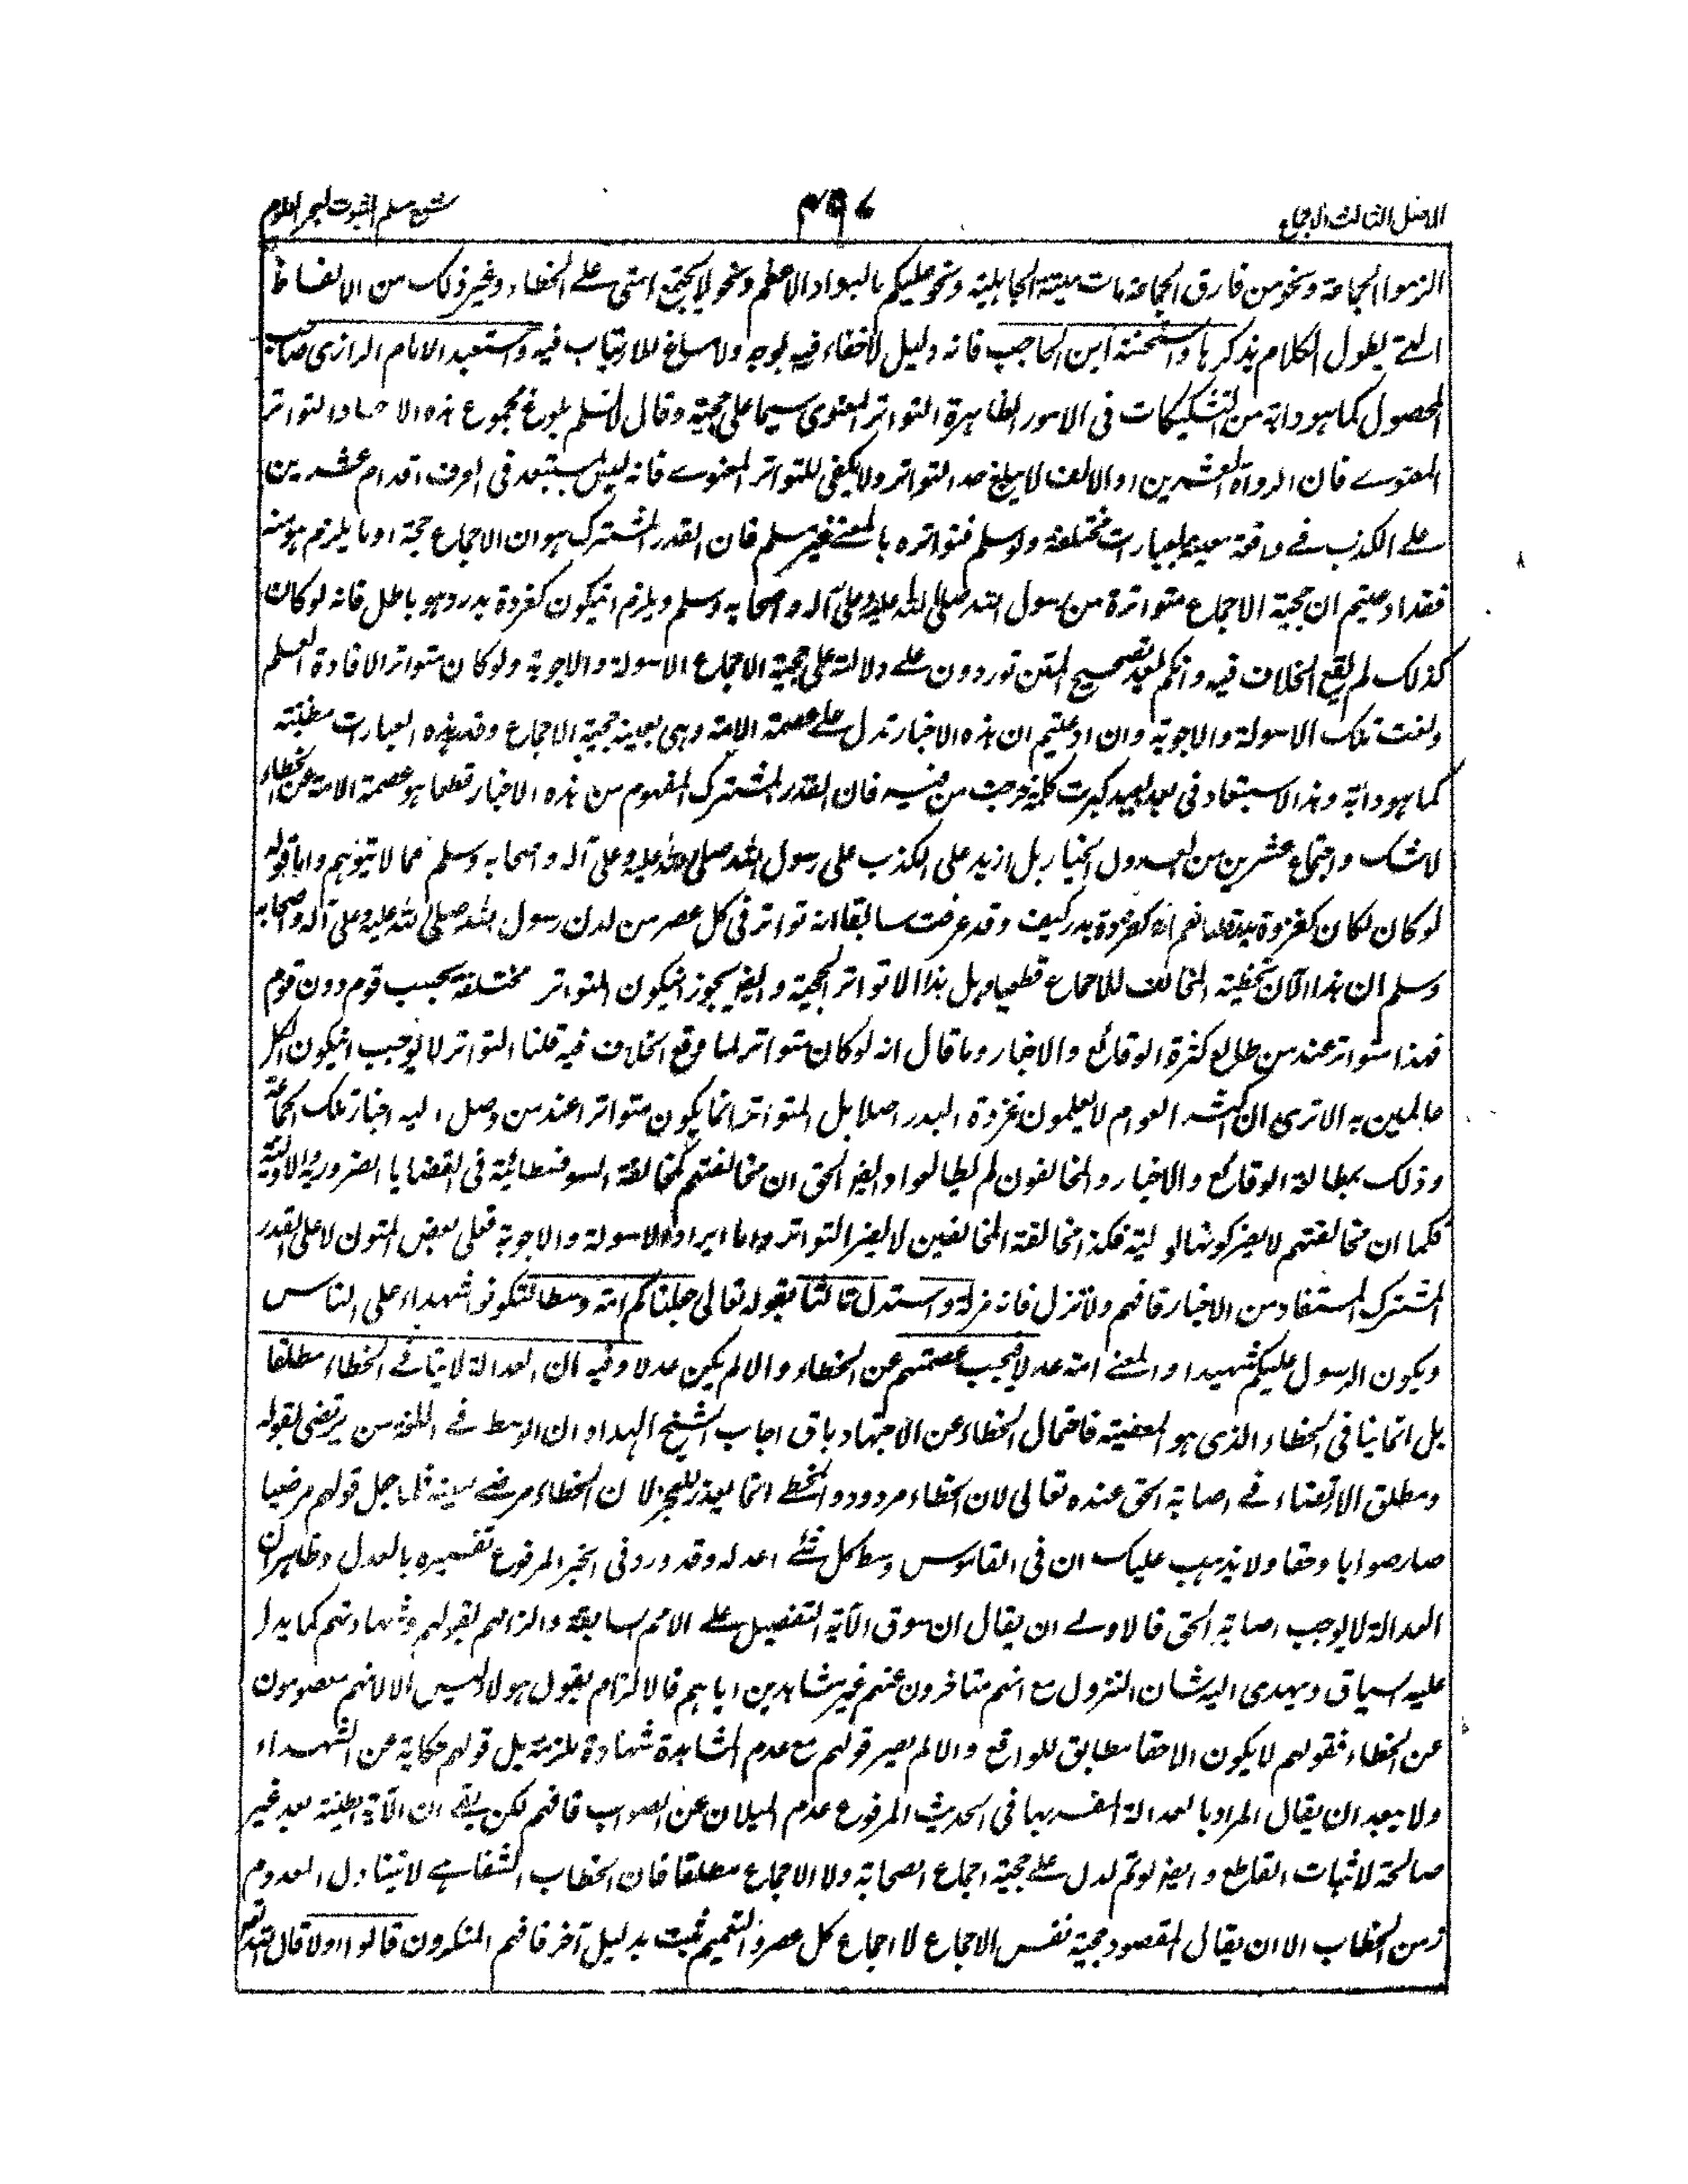 الاصل الثالث الاجماع
۴۹۷
شرح مسلم الثبوت لبحر العلوم
الزموا الجماعة ونحو من فارق الجماعة مات ميتة الجاهلية ونحو عليكم بالسواد الاعظم ونحو لا يجتمع امتى على الخطاء وغير ذلك من الالفاظ
التى يطول الكلام بذكرها واستحسنه ابن الحاجب فانه دليل لاخفاء فيه بوجه ولا مساغ للارتياب فيه واستبعد الامام الرازى صاحب
المحصول كما هو دابه من التشكيكات فى الامور الظاهرة التواتر المعنوى سيما على حجية وقال لا نسلم بلوغ مجموع هذه الاحاد التواتر
المعنوى فان الرواة العشرين او الالف لا يبلغ حد التواتر ولا يكفى للتواتر المعنوى فانه ليس بمستبعد فى العرف اقدام عشرين
على الكذب فى واقعة معينة بعبارات مختلفة ولو سلم فتواتره بالمعنى غير مسلم فان القدر المشترك هو ان الاجماع حجة او ما يلزم هو منه
فقد ادعيتم ان حجية الاجماع متواترة من رسول الله صلى الله عليه وعلى آله واصحابه وسلم ويلزم ان يكون كغزوة بدر وهو باطل فانه لو كان
كذلك لم يقع الخلاف فيه وانكم بعد تصحيح المتن توردون على دلالته على حجية الاجماع الاسولة والاجوبة ولو كان متواترا لافادة العلم
ولغت تلك الاسولة والاجوبة وان ادعيتم ان هذه الاخبار تدل على عصمة الامة وهى بعينه حجية الاجماع وقد هذه العبارات مطنبة
كما هو دابه وهذا الاستبعاد فى بعد بعيد كبرت كلمة خرجت من فيه فان القدر المشترك المفهوم من هذه الاخبار قطعا هو عصمة الامة عن الخطاء
لا شك واجتماع عشرين من العدول الخيار بل ازيد على الكذب على رسول الله صلى الله عليه وعلى آله واصحابه وسلم مما لا يتوهم واما قوله
لو كان لكان كغزوة بدر قلنا نعم انه كغزوة بدر كيف وقد عرفت سابقا انه تواتر فى كل عصر من لدن رسول الله صلى الله عليه وعلى آله واصحابه
وسلم الى هذا الآن تخطية المخالف للاجماع قطعا وهل هذا الا تواتر الحجية وايضا يجوز ان يكون المتواتر مختلفة بحسب قوم دون قوم
فهذا متواتر عند من طالع كثرة الوقائع والاخبار وما قال انه لو كان متواترا لما وقع الخلاف فيه قلنا التواتر لا يوجب ان يكون الكل
عالمين به الا ترى ان اكثر العوام لا يعلمون غزوة البدر اصلا بل المتواتر انما يكون متواترا عند من وصل اليه اخبار تلك الجماعة
وذلك بمطالعة الوقائع والاخبار والمخالفون لم يطالعوا وايضا الحق ان مخالفتهم كمخالفة السوفسطائية فى القضايا الضرورية الاولية
فكما ان مخالفتهم لا يضر كونها اولية فكذا مخالفة المخالفين لا يضر التواتر واما ايراد الاسولة والاجوبة فعلى بعض المتون لا على القدر
المشترك المستفاد من الاخبار فافهم ولا تزل فانه مزلة واستدل ثالثا بقوله تعالى جعلناكم امة وسطا لتكونوا شهداء على الناس
ويكون الرسول عليكم شهيدا والمعنى امة عدلا فيجب عصمتهم عن الخطاء والا لم يكن عدلا وفيه ان العدالة لا ينافى الخطاء مطلقا
بل انما ينافى الخطاء الذى هو المعصية فاحتمال الخطاء عن الاجتهاد باق اجاب الشيخ الهداد ان الوسط فى اللغة من يرتضى بقوله
ومطلق الارتضاء فى اصابة الحق عنده تعالى لان الخطاء مردود والمخطى انما يعذر للعجز لا ان الخطاء مرضى بعينه فلما جعل قولهم مرضيا
صار صوابا وحقا ولا يذهب عليك ان فى القاموس وسط كل شئ اعدله وقد ورد فى الخبر المرفوع تفسيره بالعدل وظاهر ان
العدالة لا يوجب اصابة الحق فالاولى ان يقال ان سوق الآية لتفضيل على الامم السابقة والزامهم بقولهم وشهادتهم كما يدل
عليه السياق ويهدى اليه شان النزول مع انهم متاخرون عنهم غير مشاهدين اياهم فالالزام بقول هولاء ليس الا لانهم معصومون
عن الخطاء فقولهم لا يكون الا حقا مطابق للواقع والا لم يصير قولهم مع عدم المشاهدة شهادة ملزمة بل قولهم حكاية عن الشهداء
ولا يبعد ان يقال المراد بالعدالة المفسر بها فى الحديث المرفوع عدم الميلان عن الصواب فافهم لكن بقى ان الآية ظنية بعد غير
صالحة لاثبات القاطع وايضا لو تم لدل على حجية اجماع الصحابة ولا الاجماع مطلقا فان الخطاب الشفاهى لا يتناول المعدوم
زمن الخطاب الا ان يقال المقصود حجية نفس الاجماع لا اجماع كل عصر والتعميم يثبت بدليل آخر فافهم المنكرون قالوا اولا قال الله تعالى